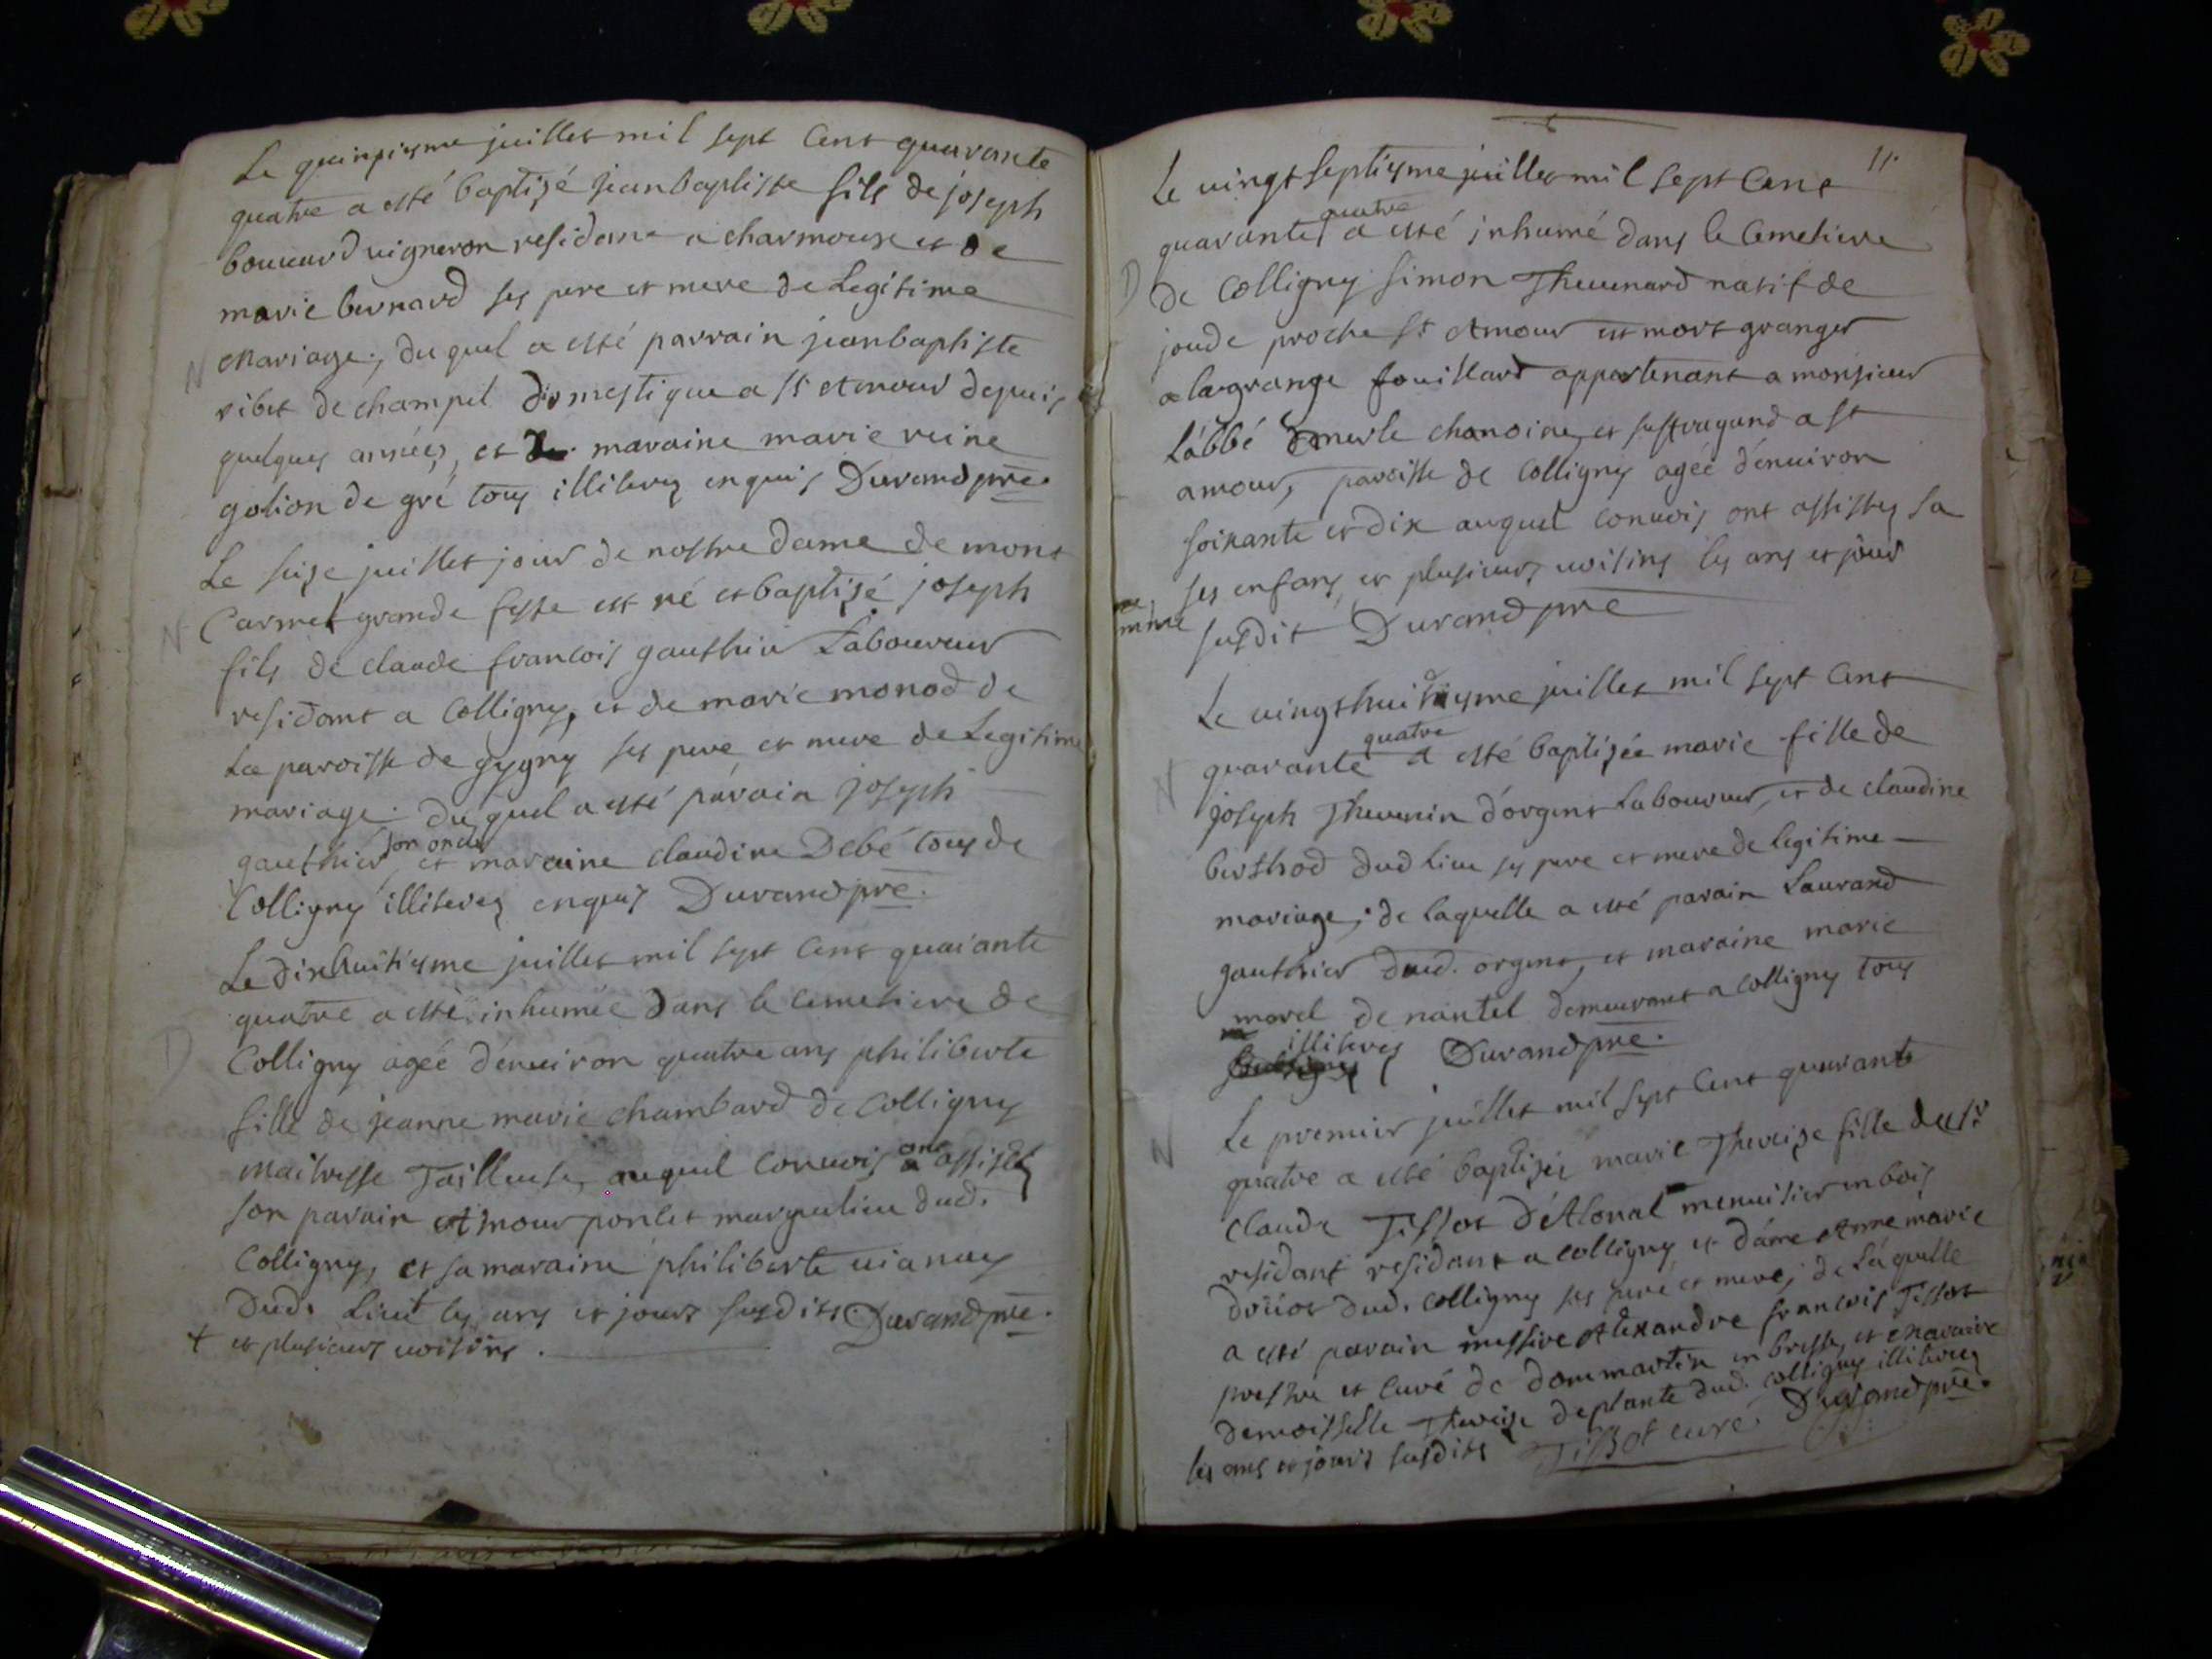 Le quinziyme juillet mil sept Cent quarante
quatre a esté baptizé jeanbaptiste fils de joseph
bouuard uigneron residant a charmoux et de
marie bernard ses pere et mere de Legitime
N Mariage; du quel a esté parrain jeanbaptiste
ribet de champel domestique a st Amour depuis
quelques années, et maraine marie reine
golion de gré tous illiterez enquis Durand pre.
Le seize juillet jour de nostre dame de mont
N Carmel grande feste est né et baptizé joseph
fils de claude francois gauthier Laboureur
residant a Colligny, et de marie monod de
La paroisse de gygny ses pere et mere de Legitime
mariage. du quel a esté parain joseph
son oncle
gauthier, et maraine claudine Debé tous de
Colligny illiterez enquis Durand pre.
Le dixhuitiyme juillet mil sept Cent quarante
quatre a esté inhumée dans le Cemetiere de
D Colligny agée d'enuiron quatre ans philiberte
fille de jeanne marie chambard de Colligny
ont
Maitresse Tailleuse, auquel conuois a assistez
son parain Amour poncet marguelieu dud.
Colligny, et sa maraine philiberte uianey
Dud. Lieu+ les ans et jours susdits. Durand pre.
+ et plusieurs uoisins.
11.
Le uingt septiyme juillet mil sept Cent
quatre
quarante a esté inhumé dans le Cemetiere
D de Colligny simon Theuenard natif de
joude proche st Amour et mort granger
a la grange fouillard appartenant a monsieur
L'abbé Demerle chanoine et suffragand a st
amour, paroisse de Colligny agée d'enuiron
soixante et dix auquel conuois ont assistez sa
ses enfans et plusieurs uoisins les ans et jour
susdit Durand pre
Le uingthuitiyme juillet mil sept Cent
quatre
N quarante a esté baptizée marie fille de
joseph Theuenin d'orgent Laboureur, et de claudine
berthod dud Lieu ses pere et mere de legitime
mariage; de laquelle a esté parain Laurand
gauthier dud. orgent, et maraine marie
morel de nantel demeurant a colligny tous
illiterez Durand pre.
N Le premier juillet mil sept Cent quarante
quatre a esté baptizée marie Thereize fille du sr
claude Tissot d'Alonal menuisier en bois
residant residant a colligny et dame Anne marie
droüot dud. colligny ses pere et mere; de Laquelle
a esté parain messire Alexandre francois Tissot
prestre et Curé de dommartin en bresse, et Maraine
demoisselle Thereize deplante dud. colligny illiterez
les ans et jours susdits Tissot curé Durand pre.